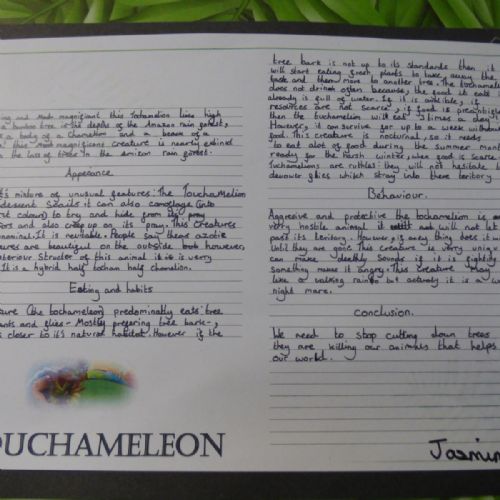 and most magnificant this tochamelion lives high
a bamboo tree in the depths of the Amazon rain forest,
a body of a chamelion and a beak of a
this most magnificent creature is nearly extinct
the loss of trees in the amizon rain forest.
Appearance
mixture of unusual features. The Touchamelion
iridescent scails it can also camoflage (into
colour) to try and hide from its prey
and also creep up on its pray. This creatures
is inevitable. People say these
are beautiful on the outside but however,
of this animal it is very
It is a hybrid half tochan half chamelion.
Eating and habits
(the tochameleon) predominatly eats tree
and flies - Mostly prefering tree bark-,
is closer to it's natural habitat. However if the
OUCHAMELEON
tree bark is not up to its standards then it
will start eating fresh plants to take away the
taste and then move to another tree. The tochameleon
does not drink often because, the food it eats
already is full of water. If it is avilible, if
resources are not scarse, if food is
then the tuchamelion will eat 3 times a day
However, it can survive for up to a week without
food. This creature is nocturnal, so it needs
to eat alot of good during the summer months
ready for the harsh winter, when good is scarse.
Tuchamelions are ruthles: they will not hesitate to
devower glies which stray into there teritory.
Behaviour.
Aggresive and protective the tochamelion is a
very hostile animal it will not let
past its teritory. However, if any thing does it will
until they are gone. This creature is very
can make deathly sounds if it is fighting
something makes it angry. This creature may
like a walking rainbow but actuely it is a
night mare.
conclusion.
We need to stop cutting down trees
they are killing our animals that helps
our world.